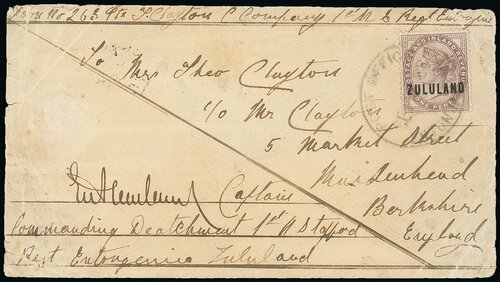 From No 263 Pte T. Clayton C Company 1st N S Regt Entongenie
To Mrs Theo Clayton
c/o Mr Clayton
5 Market Street
Maidenhead
Berkshire
England
POSTAGE AND INLAND REVENUE
ZULULAND
ONE PENNY
POST OFFICE
Captain
Commanding Deatchment 1st N Stafford
Regt Entongenie Zululand